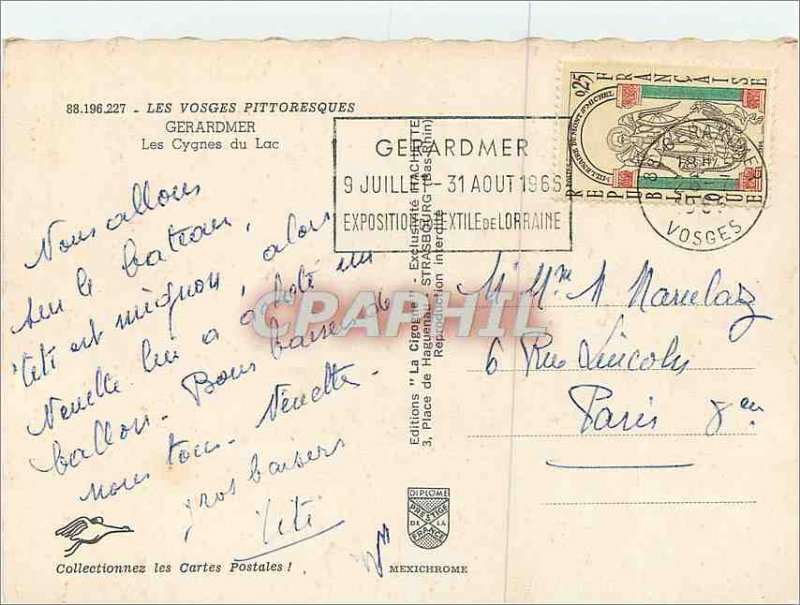 88.196.227 - LES VOSGES PITTORESQUES
GERARDMER
Les Cygnes du Lac
Nous allons
sur le bateau,
Titi est mignon, alors
Nénette lui a acheté un
ballon. Bons baisers de
nous tous. Nénette
gros baisers
Titi
Collectionnez les Cartes Postales !
Editions "La Cigogne" - Exclusivité HACHETTE
3, Place de Haguenau, STRASBOURG (Bas-Rhin)
Reproduction interdite
DIPLOME
PRESTIGE
DE LA
FRANCE
MEXICHROME
GERARDMER
9 JUILLET - 31 AOUT 1966
EXPOSITION TEXTILE DE LORRAINE
0,25
REPUBLIQUE FRANÇAISE
POSTES
MILLENAIRE DU MONT ST MICHEL
88 GERARDMER
18H
VOSGES
M. Mme
6 Rue Lincoln
Paris 8em
CPRAPHIL